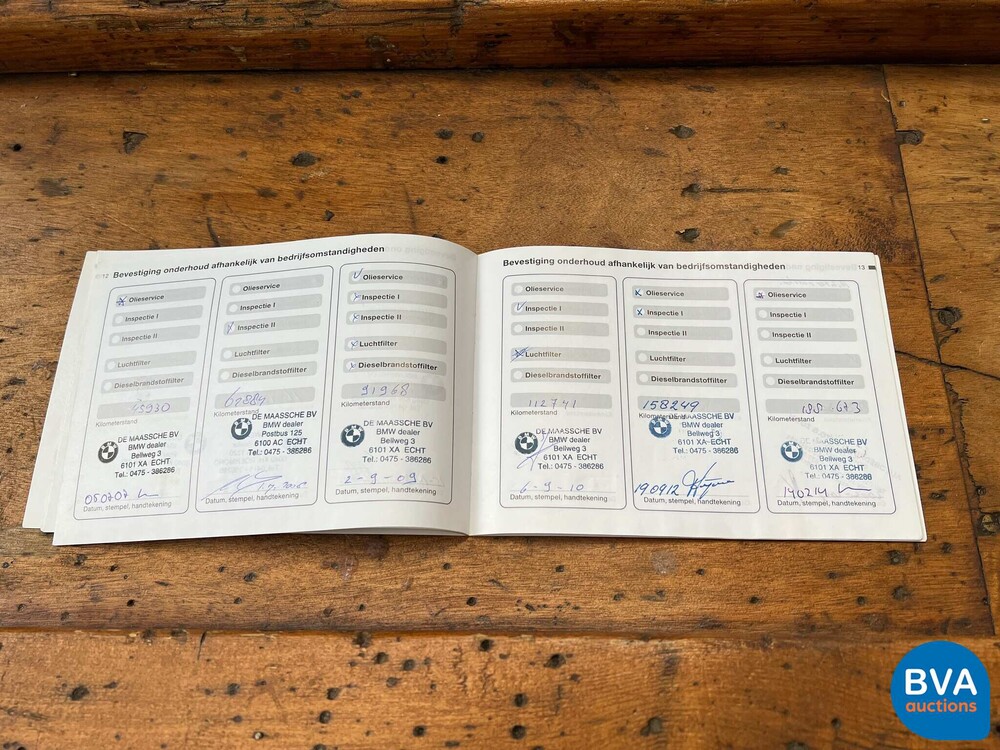 12 Bevestiging onderhoud afhankelijk van bedrijfsomstandigheden
Olieservice
Inspectie I
Inspectie II
Luchtfilter
Dieselbrandstoffilter
Kilometerstand
DE MAASSCHE BV
BMW dealer
Bellweg 3
6101 XA ECHT
Tel.: 0475 - 386286
050707
Datum, stempel, handtekening
Olieservice
Inspectie I
Inspectie II
Luchtfilter
Dieselbrandstoffilter
Kilometerstand
DE MAASSCHE BV
BMW dealer
Postbus 125
6100 AC ECHT
Tel.: 0475 - 386286
Datum, stempel, handtekening
Olieservice
Inspectie I
Inspectie II
Luchtfilter
Dieselbrandstoffilter
91968
Kilometerstand
DE MAASSCHE BV
BMW dealer
Bellweg 3
6101 XA ECHT
Tel.: 0475 - 386286
2-9-09
Datum, stempel, handtekening
Bevestiging onderhoud afhankelijk van bedrijfsomstandigheden 13
Olieservice
Inspectie I
Inspectie II
Luchtfilter
Dieselbrandstoffilter
112741
Kilometerstand
DE MAASSCHE BV
BMW dealer
Bellweg 3
6101 XA ECHT
Tel.: 0475 - 386286
6-9-10
Datum, stempel, handtekening
Olieservice
Inspectie I
Inspectie II
Luchtfilter
Dieselbrandstoffilter
158249
Kilometerstand
DE MAASSCHE BV
BMW dealer
Bellweg 3
6101 XA ECHT
Tel.: 0475 - 386286
190912
Datum, stempel, handtekening
Olieservice
Inspectie I
Inspectie II
Luchtfilter
Dieselbrandstoffilter
Kilometerstand
DE MAASSCHE BV
BMW dealer
Bellweg 3
6101 XA ECHT
Tel.: 0475 - 386286
140214
Datum, stempel, handtekening
BVA
auctions